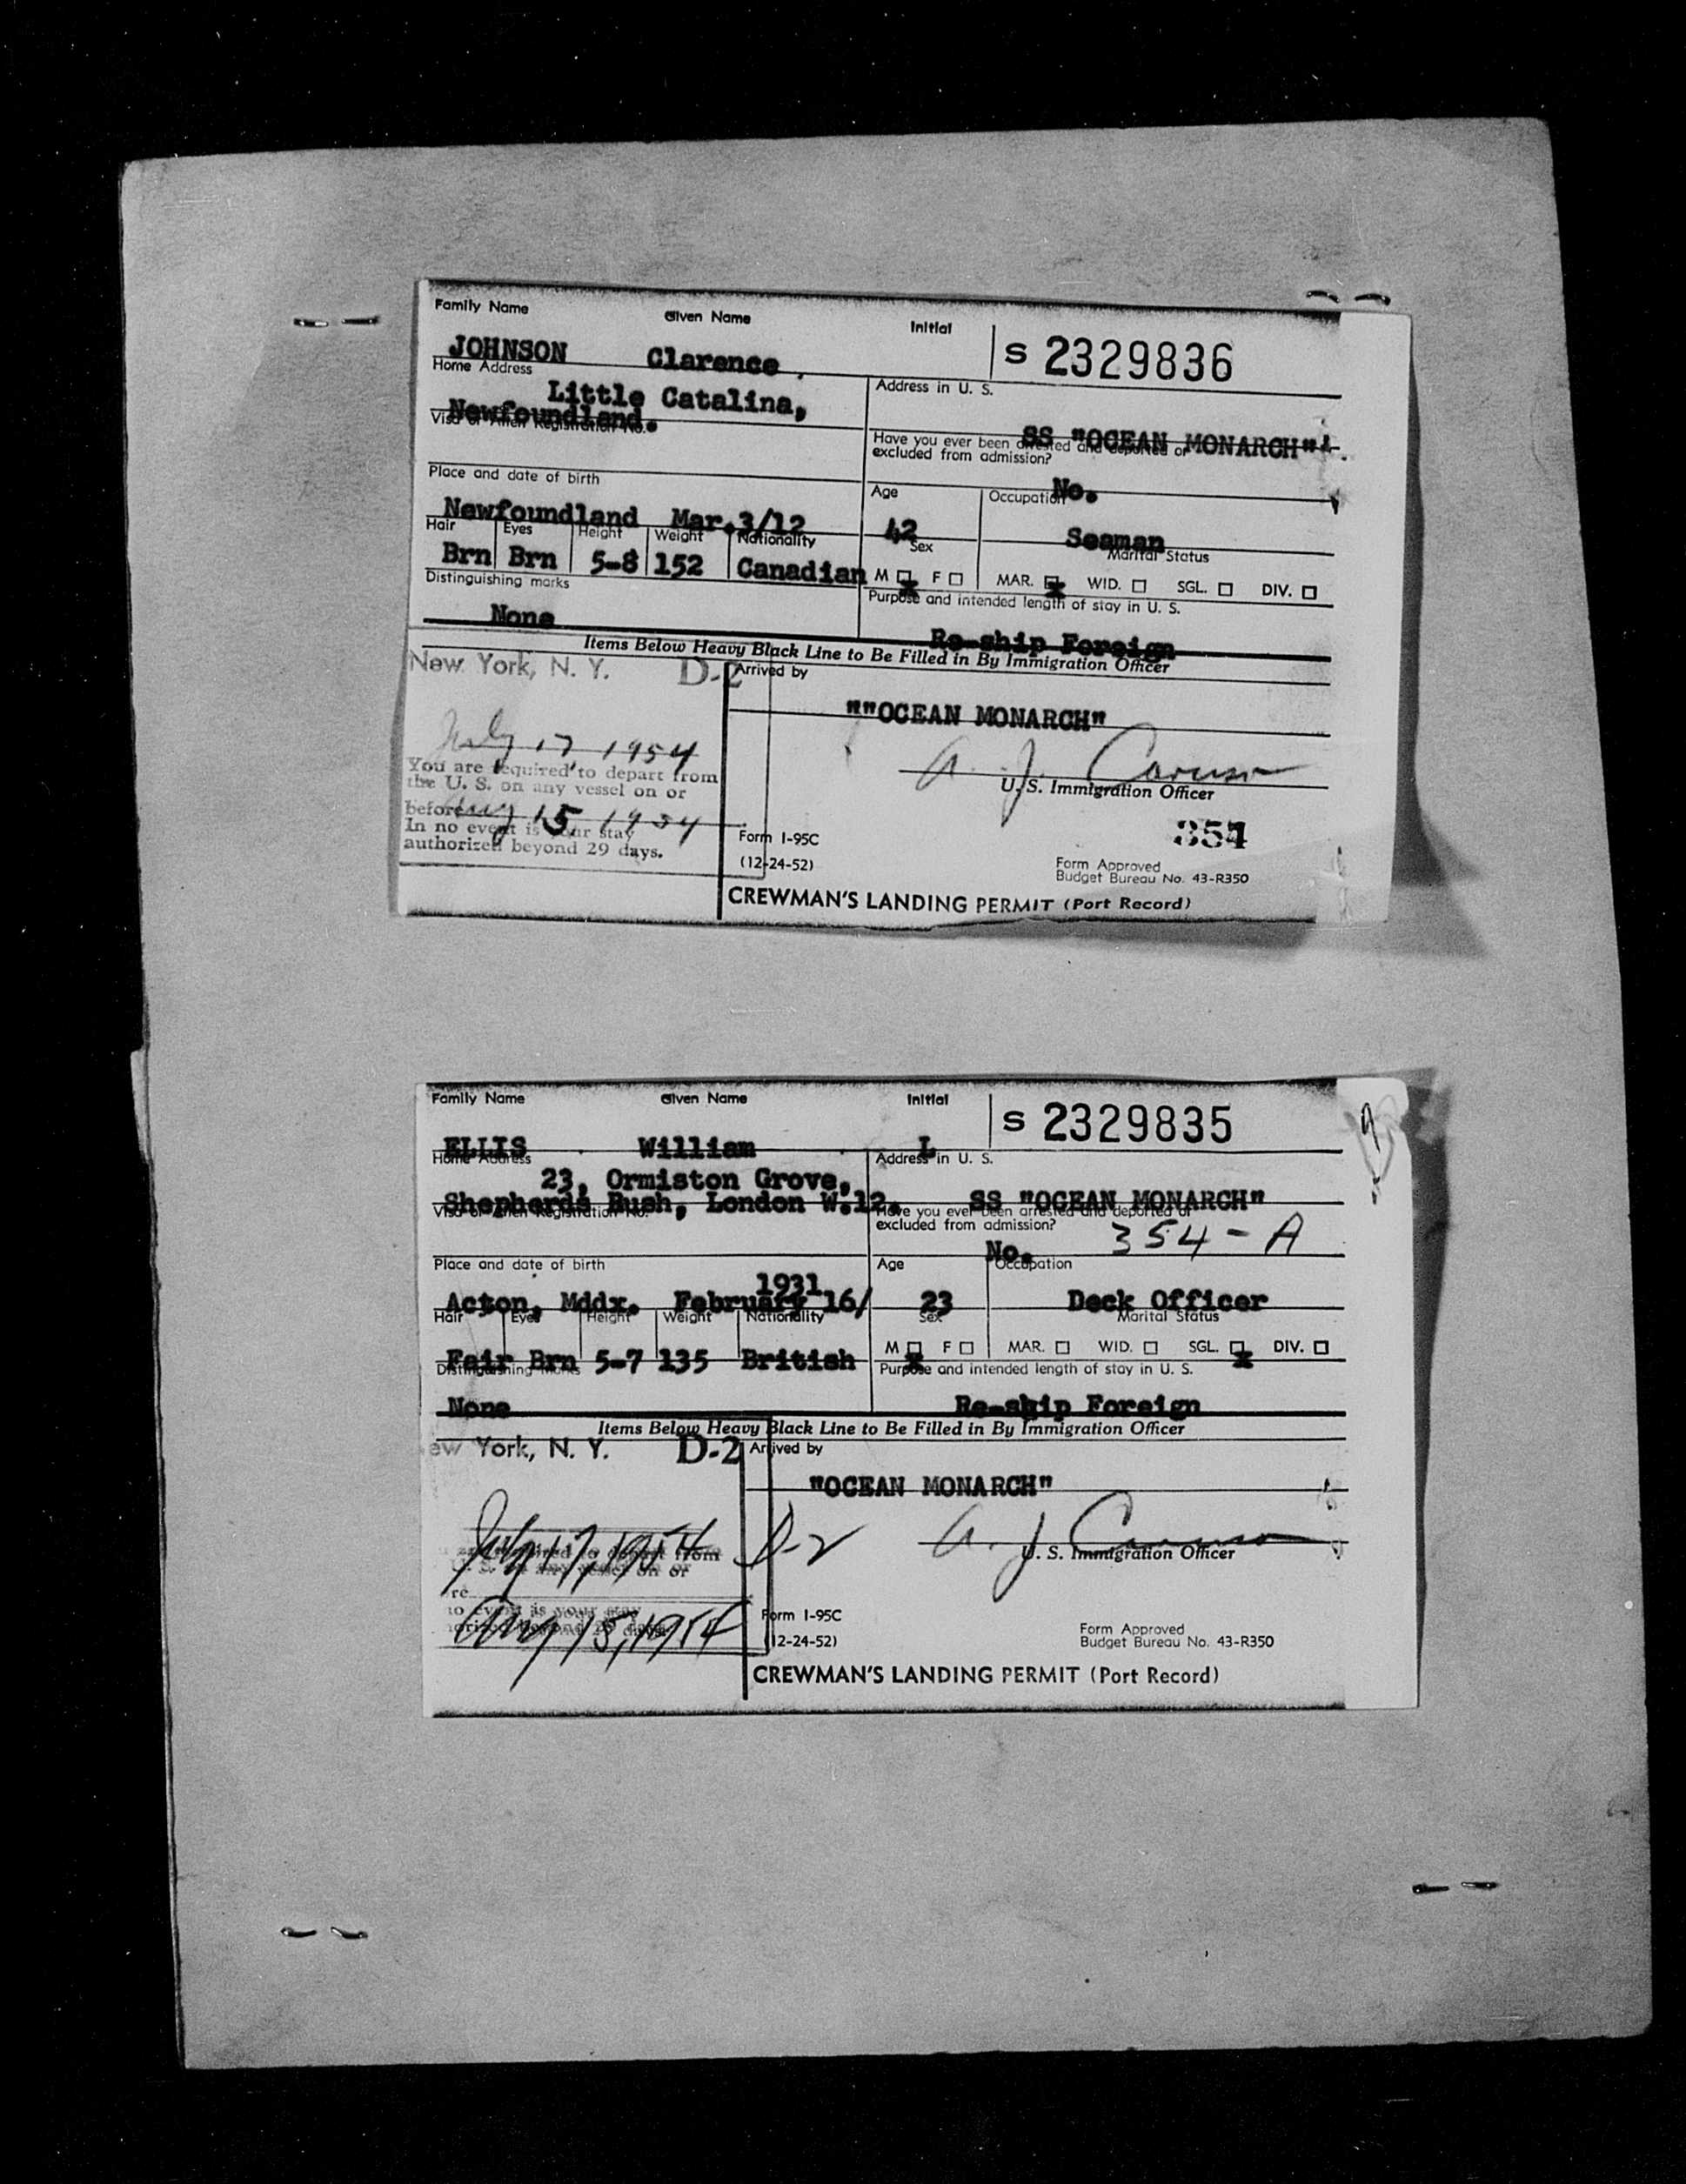 Family Name Given Name Initial
JOHNSON Clarence . S 2329836
Home Address Address in U. S.
Little Catalina,
Newfoundland. SS "OCEAN MONARCH"
Visa or Alien Registration No. Have you ever been arrested and deported or
excluded from admission?
No.
Place and date of birth Age Occupation
Newfoundland Mar.3/12 42 Seaman
Hair Eyes Height Weight Nationality Sex Marital Status
Brn Brn 5-8 152 Canadian M F MAR. WID. SGL. DIV.
Distinguishing marks Purpose and intended length of stay in U. S.
None Re-ship Foreign
Items Below Heavy Black Line to Be Filled in By Immigration Officer
New York, N. Y. D-2 Arrived by
""OCEAN MONARCH"
July 17 1954 A. J. Caruso
You are required to depart from
the U. S. on any vessel on or U. S. Immigration Officer
before Aug 15 1954
In no event is your stay Form I-95C 354
authorized beyond 29 days. (12-24-52) Form Approved
Budget Bureau No. 43-R350
CREWMAN'S LANDING PERMIT (Port Record)
Family Name Given Name Initial
ELLIS William L S 2329835
Home Address Address in U. S.
23, Ormiston Grove,
Shepherds Bush, London W.12. SS "OCEAN MONARCH"
Visa or Alien Registration No. Have you ever been arrested and deported or
excluded from admission? 354-A
No.
Place and date of birth Age Occupation
1931
Acton, Mddx. February 16/ 23 Deck Officer
Hair Eyes Height Weight Nationality Sex Marital Status
Fair Brn 5-7 135 British M F MAR. WID. SGL. DIV.
Distinguishing marks Purpose and intended length of stay in U. S.
None Re-ship Foreign
Items Below Heavy Black Line to Be Filled in By Immigration Officer
ew York, N. Y. D-2 Arrived by
"OCEAN MONARCH"
July 17, 1954 D-2 A. J. Caruso
required to depart from U. S. Immigration Officer
U. S. on any vessel on or
re
no event is your stay Form I-95C
Aug 15, 1954 (12-24-52) Form Approved
Budget Bureau No. 43-R350
CREWMAN'S LANDING PERMIT (Port Record)